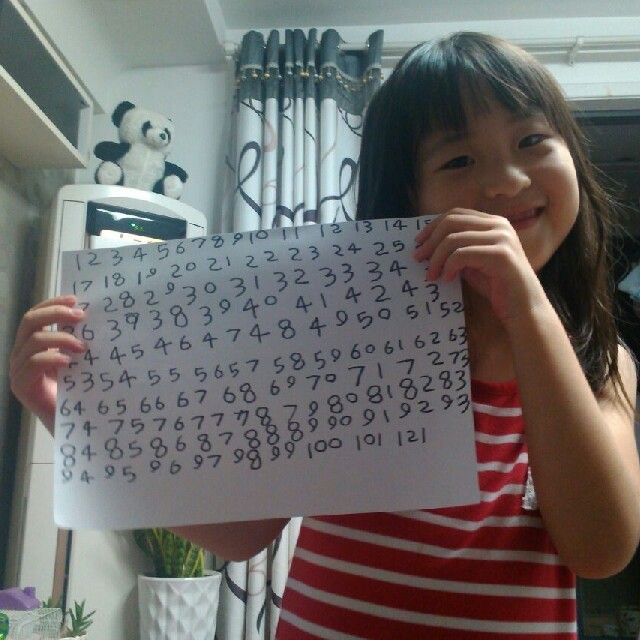 1 2 3 4 5 6 7 8 9 10 11 12 13 14 1
17 18 19 20 21 22 23 24 25
28 29 30 31 32 33 34
6 39 38 39 40 41 42 43
44 45 46 47 48 49 50 51 52
53 54 55 56 57 58 59 60 61 62 63
64 65 66 67 68 69 70 71 72 73
74 75 76 77 78 79 80 81 82 83
84 85 86 87 88 89 90 91 92 93
94 95 96 97 98 99 100 101 121